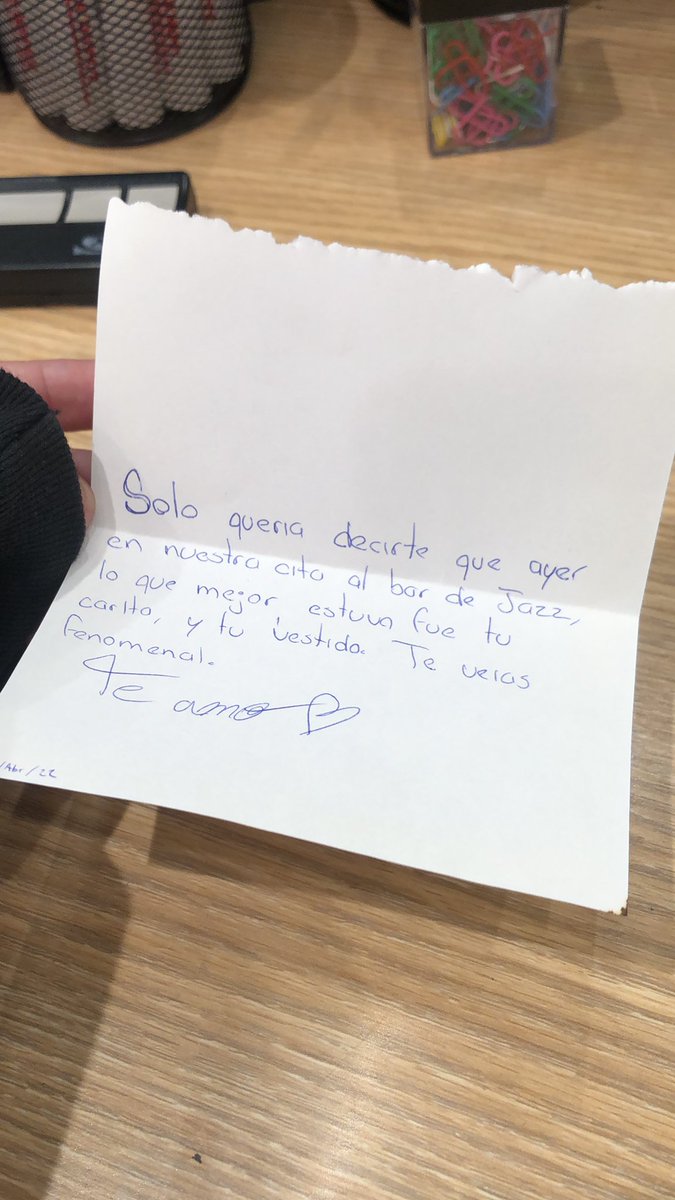 Solo queria decirte que ayer
en nuestra cita al bar de Jazz,
lo que mejor estuvo fue tu
carita, y tu vestido. Te veias
fenomenal.
Te amo
/Abr/22